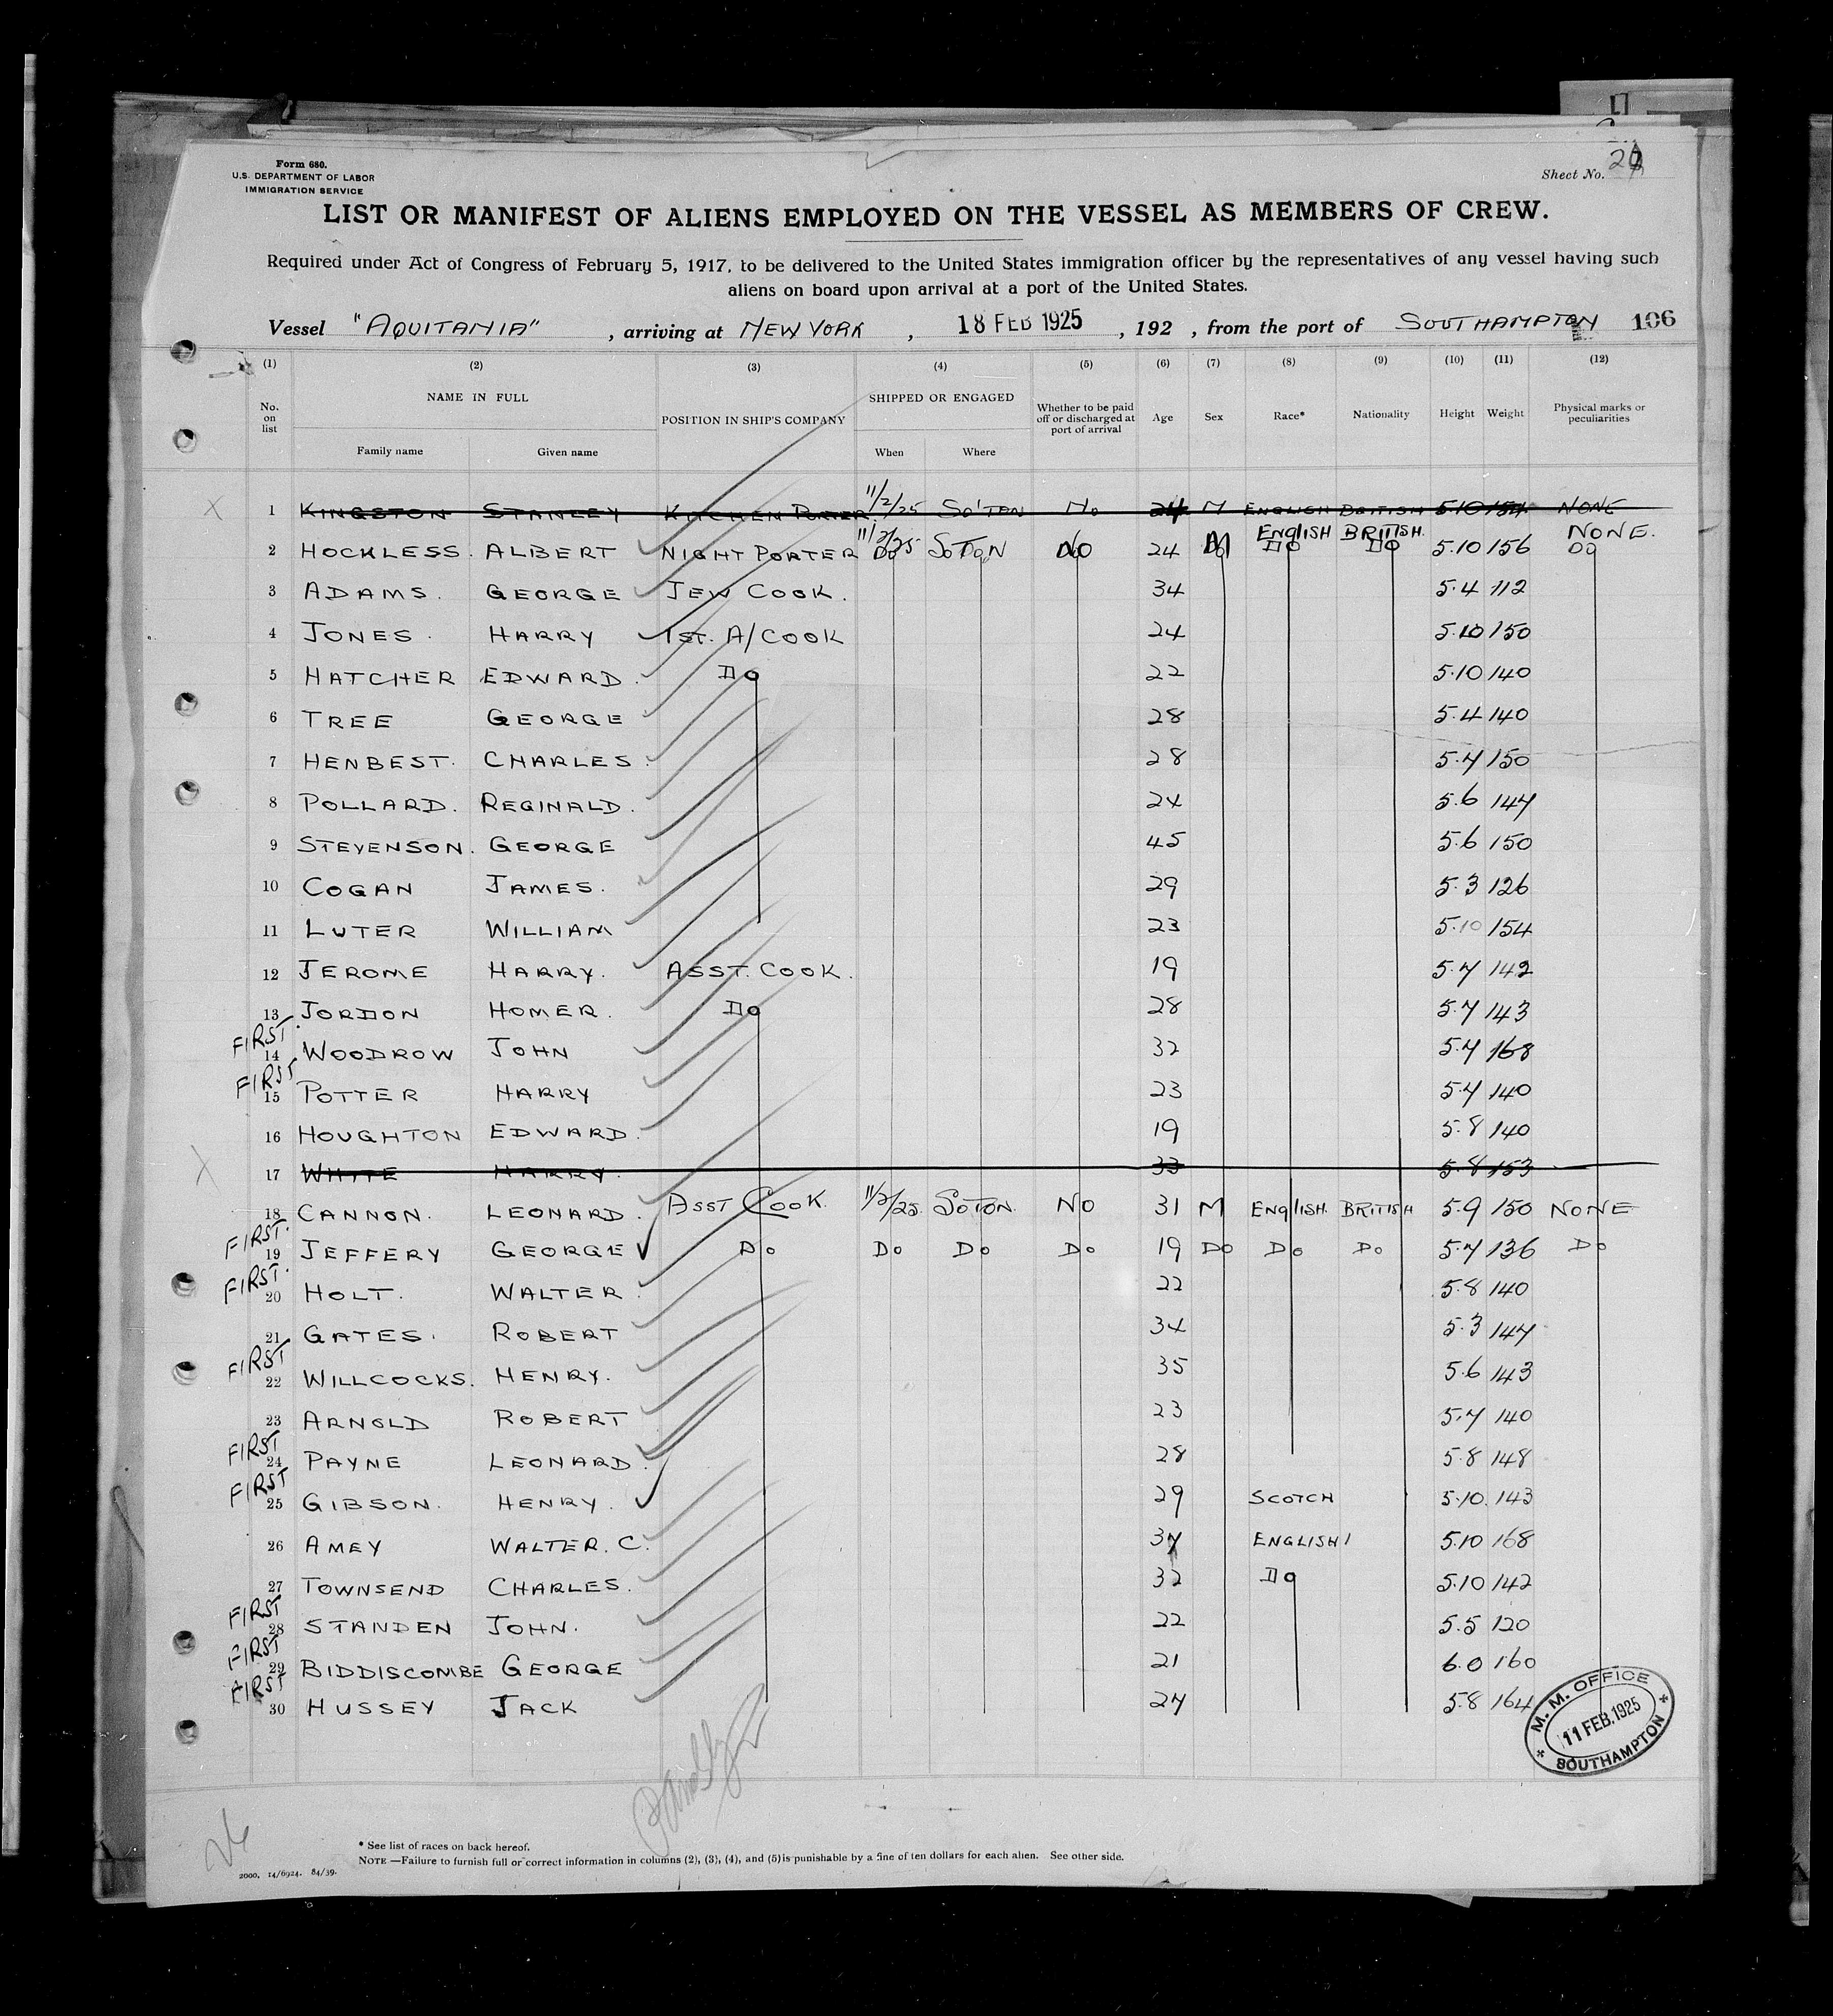 Form 680.
U.S. DEPARTMENT OF LABOR
IMMIGRATION SERVICE
Sheet No.
LIST OR MANIFEST OF ALIENS EMPLOYED ON THE VESSEL AS MEMBERS OF CREW.
Required under Act of Congress of February 5, 1917, to be delivered to the United States immigration officer by the representatives of any vessel having such
aliens on board upon arrival at a port of the United States.
Vessel "AQUITANIA", arriving at NEW YORK, 18 FEB 1925, 192 , from the port of SOUTHAMPTON 106
(1) (2) (3) (4) (5) (6) (7) (8) (9) (10) (11) (12)
No. on list NAME IN FULL Family name Given name POSITION IN SHIP'S COMPANY SHIPPED OR ENGAGED When Where Whether to be paid off or discharged at port of arrival Age Sex Race* Nationality Height Weight Physical marks or peculiarities
X 1 KINGSTON STANLEY KITCHEN PORTER 11/2/25 SO'TON No 24 M ENGLISH BRITISH 5.10 154 NONE
2 HOCKLESS. ALBERT NIGHT PORTER 11/2/25 SOTON NO 24 M ENGLISH BRITISH. 5.10 156 NONE.
3 ADAMS. GEORGE JEW COOK. 34 5.4 112
4 JONES. HARRY 1ST. A/COOK 24 5.10 150
5 HATCHER EDWARD. DO 22 5.10 140
6 TREE GEORGE 28 5.4 140
7 HENBEST. CHARLES. 28 5.7 150
8 POLLARD. REGINALD. 24 5.6 147
9 STEVENSON. GEORGE 45 5.6 150
10 COGAN JAMES. 29 5.3 126
11 LUTER WILLIAM 23 5.10 154
12 JEROME HARRY. ASST. COOK. 19 5.7 142
13 JORDON HOMER. DO 28 5.7 143
FIRST. 14 WOODROW JOHN 32 5.7 168
FIRST 15 POTTER HARRY 23 5.7 140
16 HOUGHTON EDWARD. 19 5.8 140
X 17 WHITE HARRY. 33 5.8 153
18 CANNON. LEONARD. ASST COOK. 11/2/25. SOTON. NO 31 M ENGLISH. BRITISH 5.9 150 NONE
FIRST. 19 JEFFERY GEORGE DO DO DO DO 19 DO DO DO 5.7 136 DO
FIRST. 20 HOLT. WALTER. 22 5.8 140
21 GATES. ROBERT 34 5.3 147
FIRST 22 WILLCOCKS. HENRY. 35 5.6 143
23 ARNOLD ROBERT 23 5.7 140
FIRST 24 PAYNE LEONARD. 28 5.8 148
FIRST 25 GIBSON. HENRY. 29 SCOTCH 5.10. 143
26 AMEY WALTER. C. 37 ENGLISH 5.10 168
27 TOWNSEND CHARLES. 32 DO 5.10 142
FIRST 28 STANDEN JOHN. 22 5.5 120
FIRST 29 BIDDISCOMBE GEORGE 21 6.0 160
FIRST 30 HUSSEY JACK 27 5.8 164
M. M. OFFICE
11 FEB. 1925
SOUTHAMPTON
26
* See list of races on back hereof.
NOTE —Failure to furnish full or correct information in columns (2), (3), (4), and (5) is punishable by a fine of ten dollars for each alien. See other side.
2000. 14/6924. 84/39.